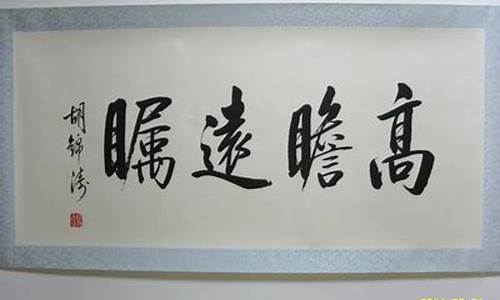 高瞻遠瞩
胡錦濤